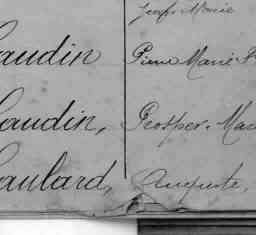 Joseph Marie
Gaudin Pierre Marie
Gaudin, Prosper. Mar
Gaulard, Auguste,